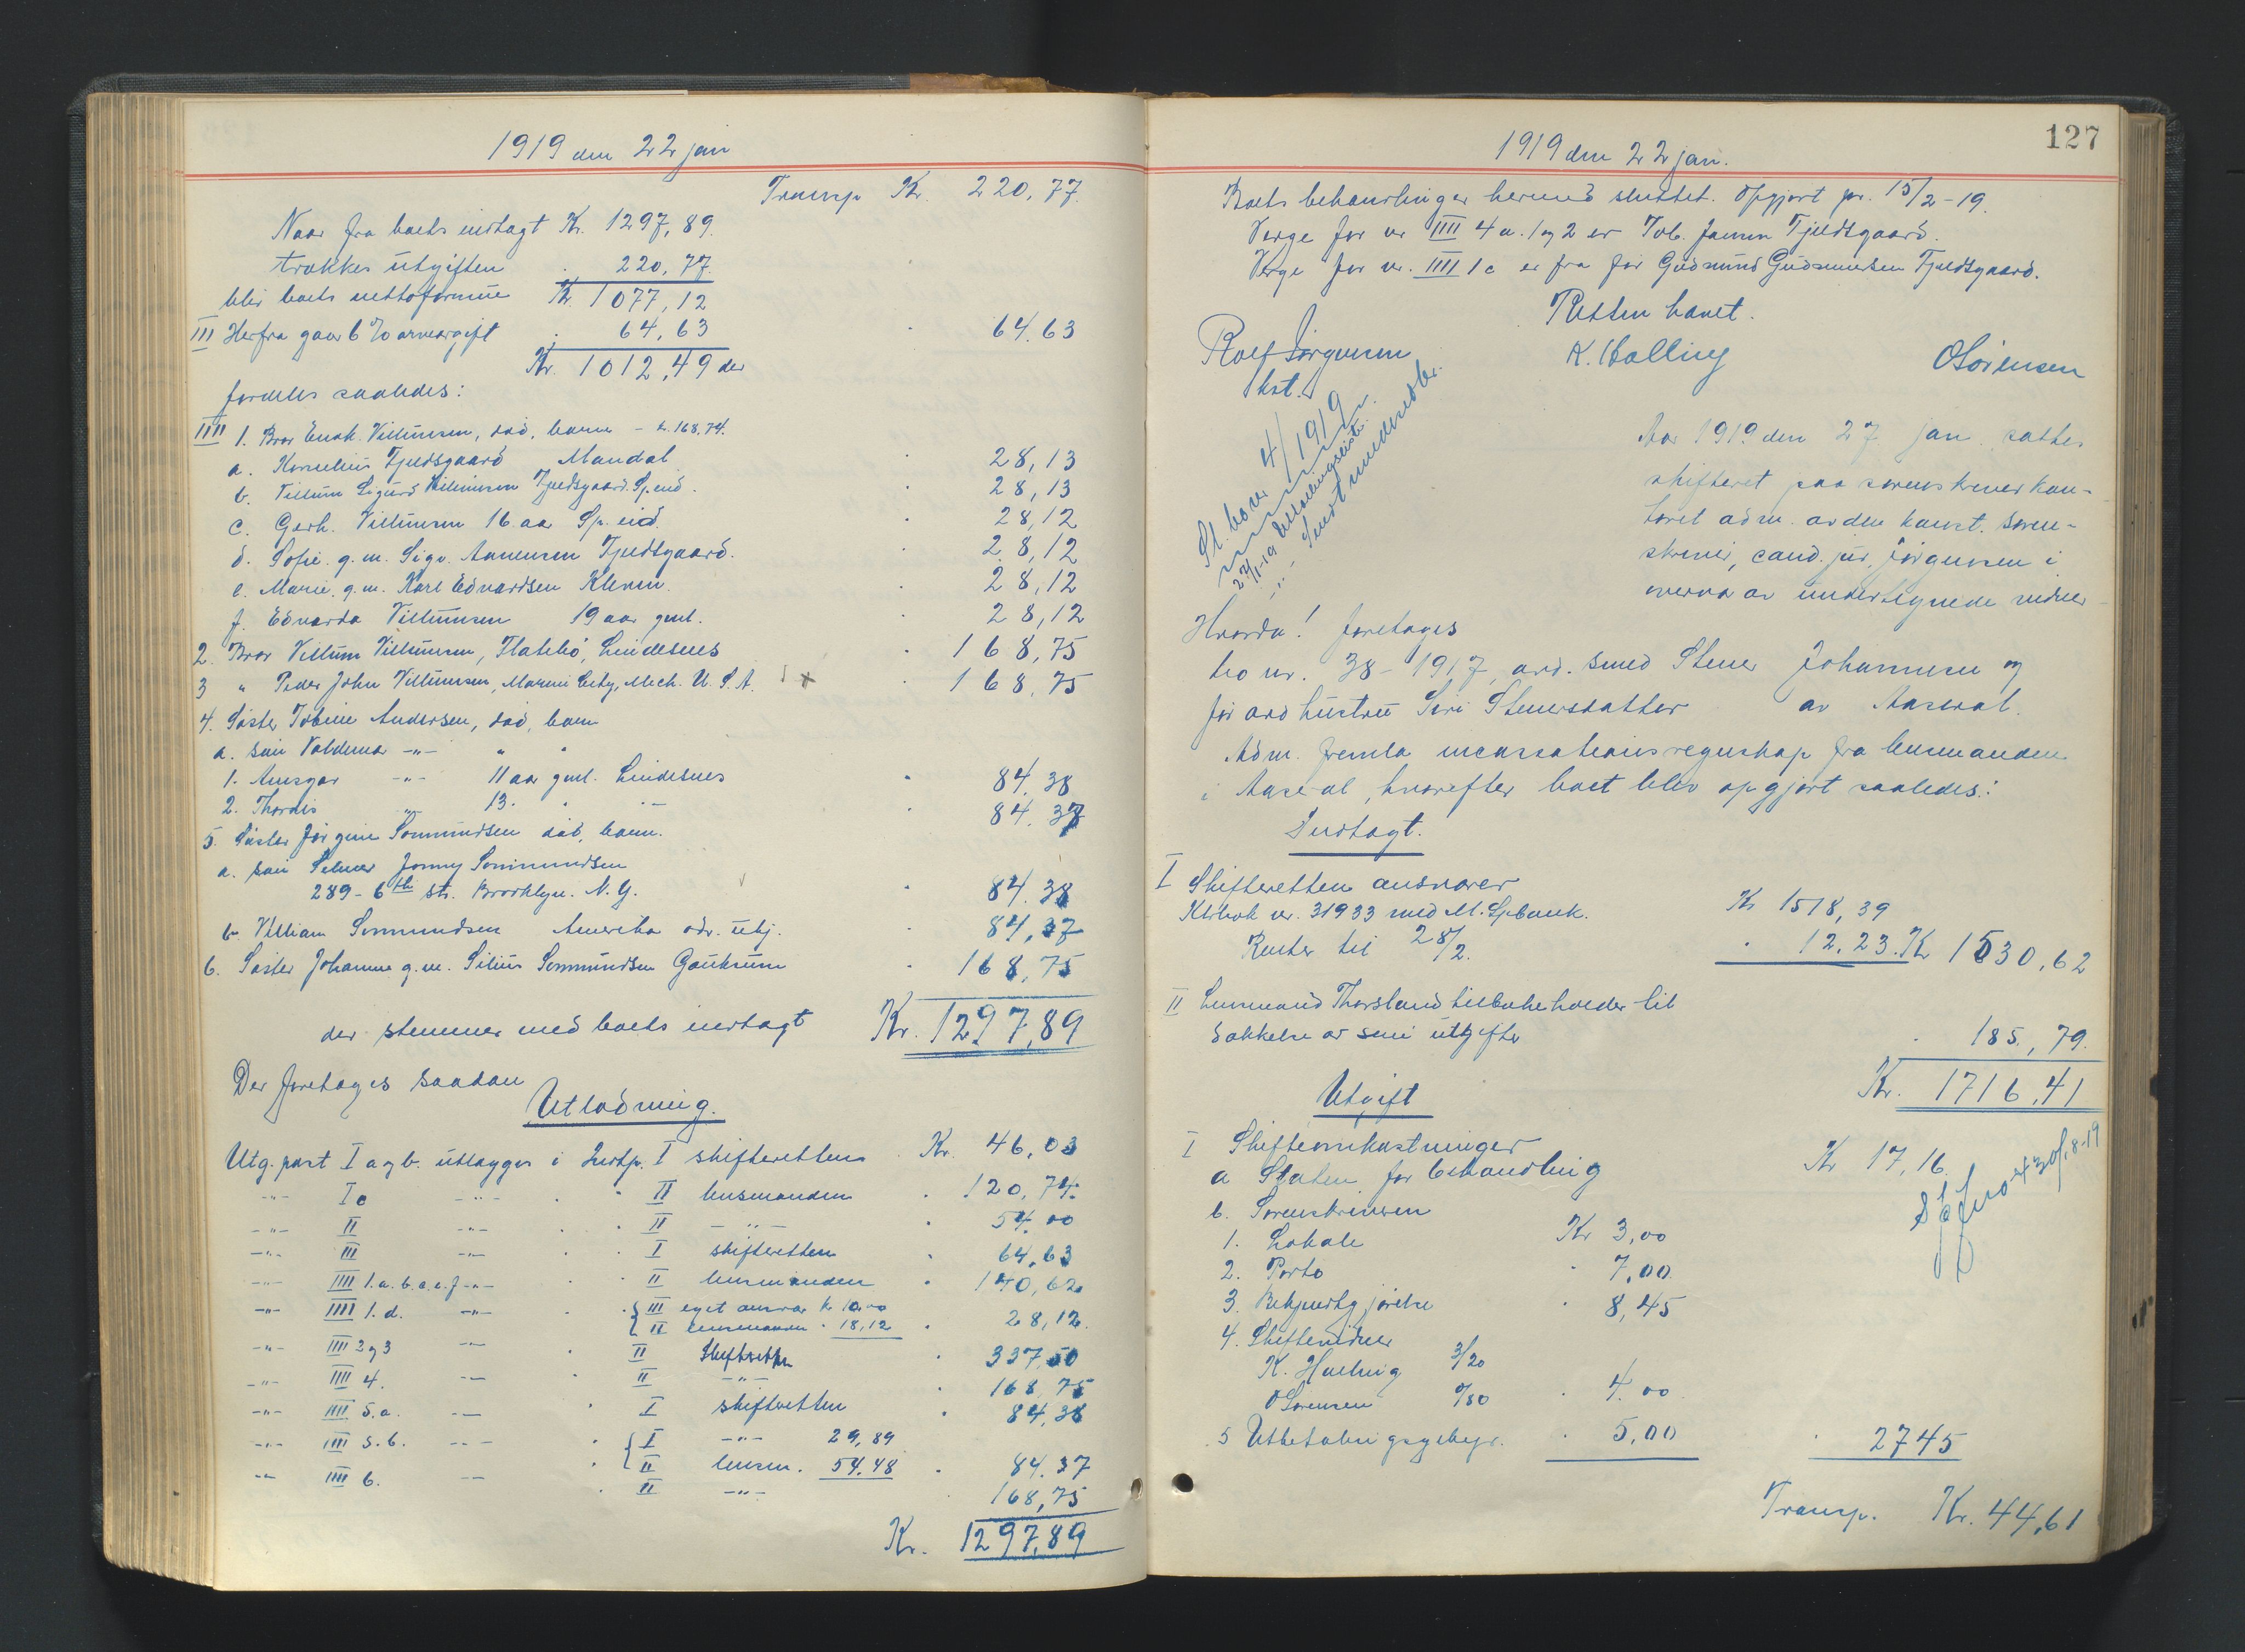 1919 den 22 jan
Transp Kr. 220,77.
Naar fra boets indtagt Kr. 1297,89.
trækkes utgiften . 220,77.
blir boets nettoformue Kr. 1077,12
III Herfra gaar 6% arveavgift . 64,63 . 64.63
Kr. 1012,49 der
fordeles saaledes:
IIII 1. Bror Enok Villumsen, død, barn - kr. 168.74.
a. Kornelius Fjeldsgaard Mandal . 28,13
b. Villum Sigurd Villumsen Fjeldsgaard. Sp.eid. . 28,13
c. Gerh. Villumsen 16 aar Sp. eid. . 28,12
d. Sofie g.m. Sigv. Aanensen Fjeldsgaard. . 28,12
e. Marie g.m. Karl Edvardsen Kleven. . 28,12
f. Edvarda Villumsen 19 aar gml. . 28,12
2. Bror Villum Villumsen, Flatebö, Lindesnes . 168,75
3 " Peder John Villumsen, Marine City, Mich. U.S.A. . 168,75
4. Söster Tobine Andersen, död, barn
a. sön Valdemar -"- " "
1. Ansgar -"- 11 aar gml. Lindesnes . 84.38
2. Thordis -"- 13. " -"- . 84.37
5. Söster Jörgine Sommundsen död, barn.
a. sön Selmer Jonny Sommundsen
289 - 6th str. Brooklyn. N.Y. . 84.38
b. Villiam Sommundsen Amerika adr. ubj. . 84,37
6. Söster Johanne g.m. Silius Sommundsen Gauksum . 168,75
der stemmer med boets indtagt Kr. 1297,89
Der foretages saadan
Utlodning.
Utg. post I a og b. utlægges i Indtp. I skifteretten . Kr. 46,03
-"- I c -"- . " II lensmanden . 120,74.
-"- II -"- . " II -"- . 54.00
-"- III -"- . . I skifteretten . 64,63
-"- IIII 1.a.b.c.e.f -"- . " II lensmanden . 140,62
-"- IIII 1.d. -"- . { III eget ansvar kr 10.00
II lensmanden . 18,12 . 28,12.
-"- IIII 2 og 3 -"- . II Skifteretten . 337,50
-"- IIII 4. -"- . II -"- . 168.75
-"- IIII 5.a. -"- . I skifteretten . 84,38
-"- IIII 5.b. -"- . { I -"- 29,89
II lensm. 54.48 . 84.37
-"- IIII 6. -"- . II -"- . 168,75
Kr. 1297,89
127
1919 den 22 jan.
Boets behandlinger hermed sluttet. Opgjort pr. 15/2-19.
Verge for nr IIII 4 a. 1 og 2 er Tob. Jansen Fjeldsgaard.
Verge for nr. IIII 1 c er fra før Gudmund Gudmundsen Fjeldsgaard.
Retten hævet.
Rolf Jørgensen K. Halling O Sørensen
kst.
St. bover 4/1919
22/11-19
Sendt
Aar 1919 den 27 jan. sattes
skifteret paa sorenskriverkon-
toret adm. av den konst. soren-
skriver, cand. jur. Jörgensen i
overvær av undertegnede vidner
Hvorda! foretages
bo nr. 38 - 1917, avd. smed Stener Johannesen og
för avd hustru Siri Stenersdatter av Aaseral.
Adm. fremla incassationsregnskap fra lensmanden
i Aaseral, hvorefter boet blev opgjort saaledes:
Indtagt.
I Skifteretten ansvarer
Kl.bok nr. 31933 med M. Spbank. Kr 1518,39
Renter til 28/2. . 12.23. Kr 1530,62
II Lensmand Thorsland tilbakeholder til
dækkelse av sine utgifter . 185,79.
Kr. 1716,41
Utgift
I Skifteomkostninger
a Staten for behandling Kr 17,16.
b. Sorenskriveren
1. Lokale Kr 3,00
2. Porto . 7,00.
3. Bekjendtgjørelse . 8,45
4. Skiftevidner
K. Halling 3/20
O Sørensen 0/80 . 4.00
5 Utbetalingsgebyr. . 5,00 . 2745
Transp. Kr. 44,61